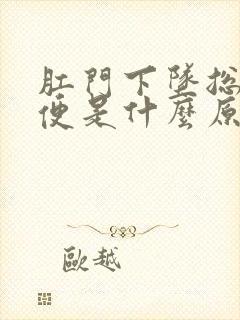 肛門下墜总
便是什麼原
歐越